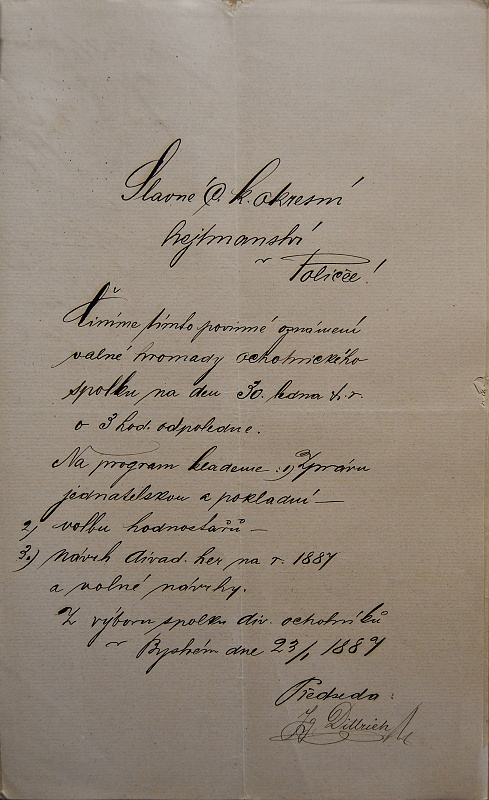 Slavné c. k. okresní
hejtmanství
v Poličce!
Činíme tímto povinné oznámení
valné hromady ochotnického
spolku na den 30. ledna t. r.
o 3 hod. odpoledne.
Na program klademe: 1) Zprávu
jednatelskou a pokladní —
2) volbu hodnostářů —
3.) návrh divad. her na r. 1887
a volné návrhy.
Z výboru spolku div. ochotníků
v Bystrém dne 23/1 1887
Předseda:
Dittrich